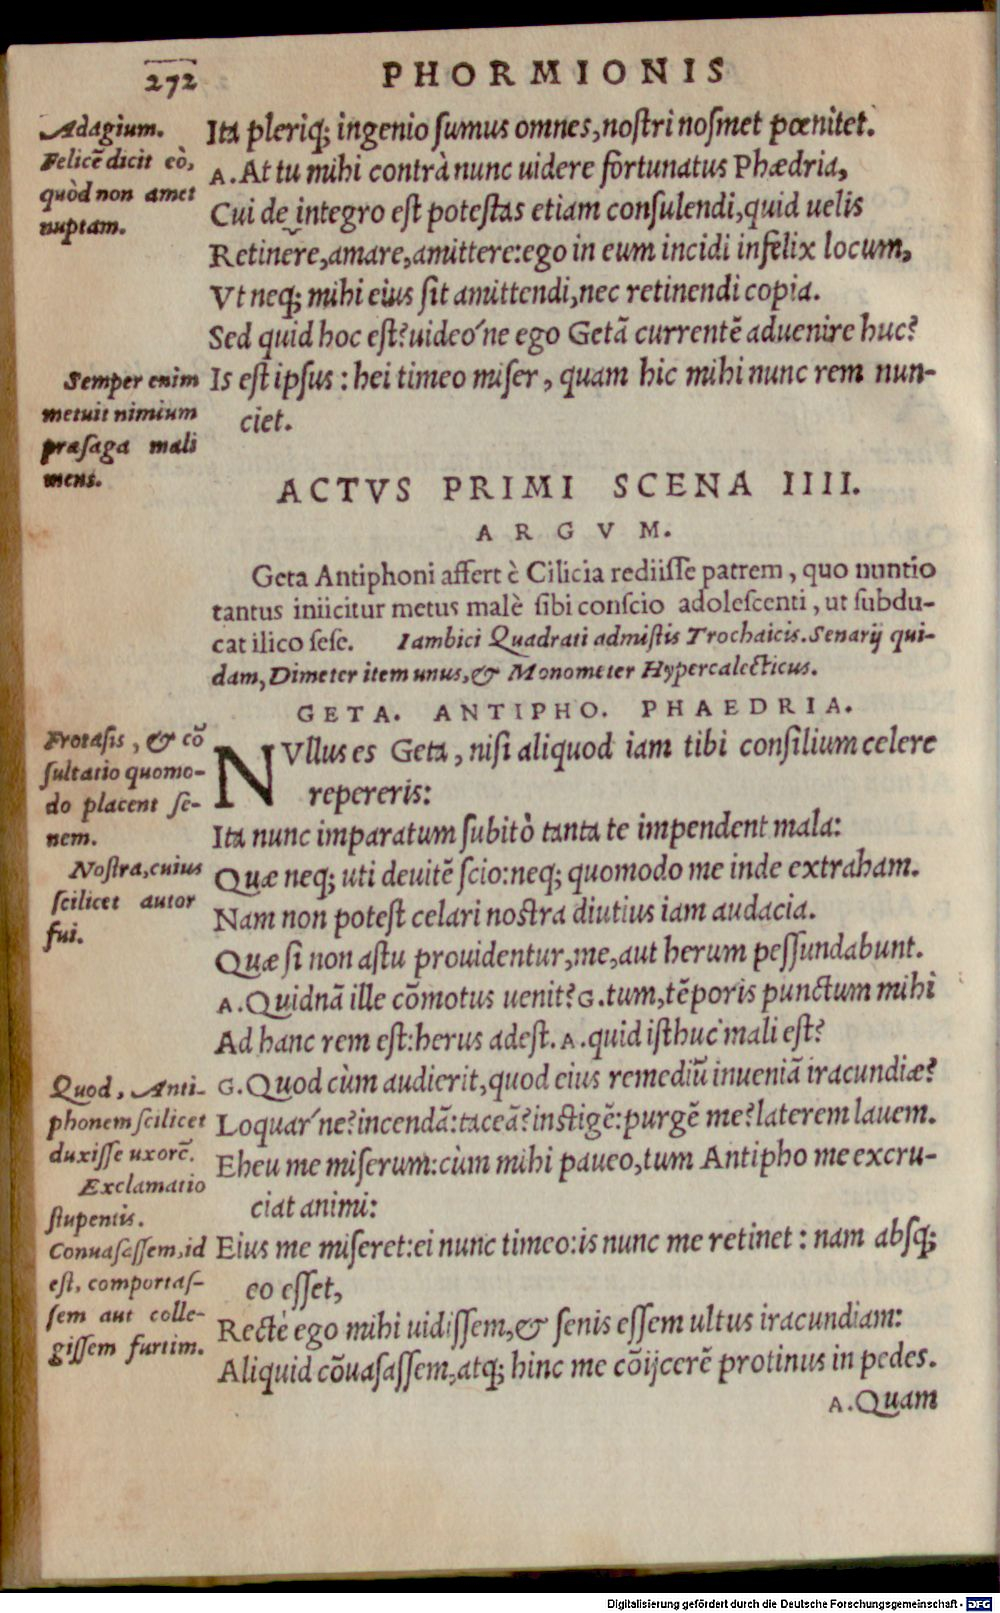 272
PHORMIONIS
Adagium.
Felicē dicit eò,
quòd non amet
nuptam.
Ita pleriq; ingenio ſumus omnes, noſtri noſmet pœnitet.
A. At tu mihi contrà nunc uidere fortunatus Phædria,
Cui de integro eſt poteſtas etiam conſulendi, quid uelis
Retinere, amare, amittere: ego in eum incidi infelix locum,
Vt neq; mihi eius ſit amittendi, nec retinendi copia.
Sed quid hoc eſt? uideo´ne ego Getā currentē aduenire huc?
Semper enim
metuit nimium
præſaga mali
mens.
Is eſt ipſus: hei timeo miſer, quam hic mihi nunc rem nun-
ciet.
ACTVS PRIMI SCENA IIII.
ARGVM.
Geta Antiphoni affert è Cilicia rediiſſe patrem, quo nuntio
tantus iniicitur metus malè ſibi conſcio adoleſcenti, ut ſubdu-
cat ilico ſeſe. Iambici Quadrati admiſtis Trochaicis. Senarij qui-
dam, Dimeter item unus, & Monometer Hypercalecticus.
GETA. ANTIPHO. PHAEDRIA.
Protaſis, & cō
ſultatio quomo-
do placent ſe-
nem.
Noſtra, cuius
ſcilicet autor
fui.
NVllus es Geta, niſi aliquod iam tibi conſilium celere
repereris:
Ita nunc imparatum ſubitò tanta te impendent mala:
Quæ neq; uti deuitē ſcio: neq; quomodo me inde extraham.
Nam non poteſt celari noſtra diutius iam audacia.
Quæ ſi non aſtu prouidentur, me, aut herum peſſundabunt.
A. Quidnā ille cōmotus uenit? G. tum, tēporis punctum mihi
Ad hanc rem eſt: herus adeſt. A. quid iſthuc mali eſt?
Quod, Anti-
phonem ſcilicet
duxiſſe uxorē.
Exclamatio
ſtupentis.
Conuaſaſſem, id
eſt, comportaſ-
ſem aut colle-
giſſem furtim.
G. Quod cùm audierit, quod eius remediū inueniā iracundiæ?
Loquar´ne? incendā: taceā? inſtigē: purgē me? laterem lauem.
Eheu me miſerum: cùm mihi paueo, tum Antipho me excru-
ciat animi:
Eius me miſeret: ei nunc timeo: is nunc me retinet: nam abſq;
eo eſſet,
Rectè ego mihi uidiſſem, & ſenis eſſem ultus iracundiam:
Aliquid cōuaſaſſem, atq; hinc me cōijcerē protinus in pedes.
A. Quam
Digitalisierung gefördert durch die Deutsche Forschungsgemeinschaft - DFG